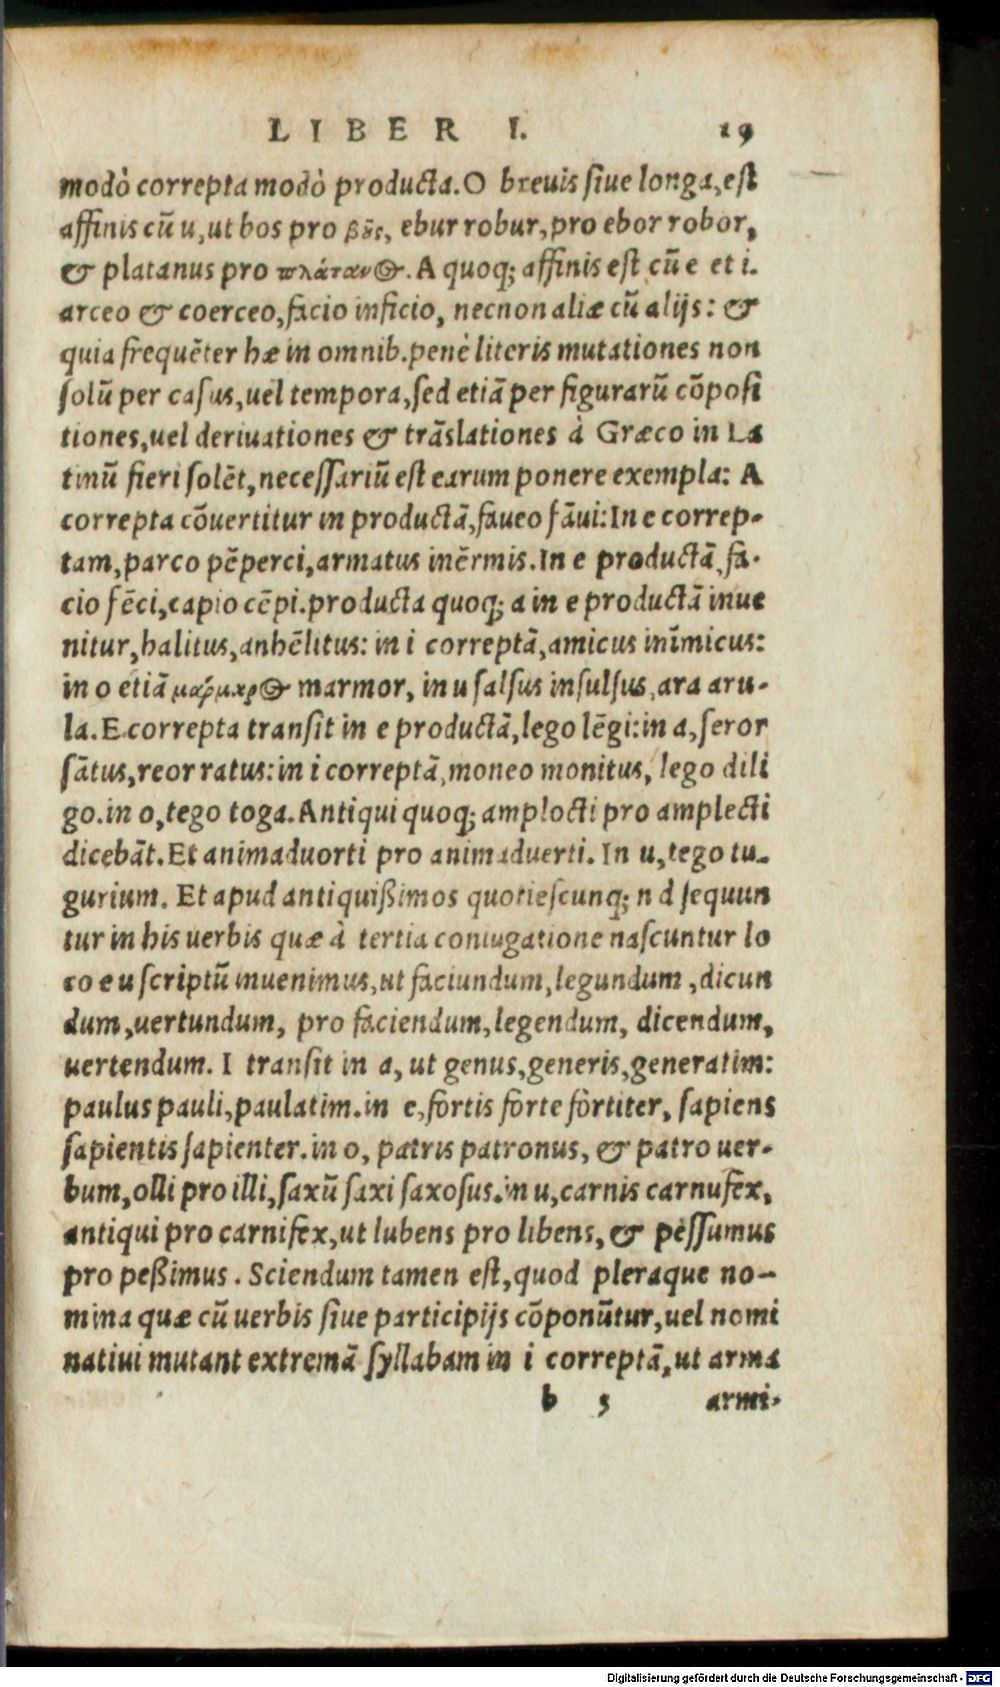 LIBER I. 19
modò correpta modò producta. O breuis siue longa, est
affinis cũ u, ut bos pro βȣ̃ς, ebur robur, pro ebor robor,
& platanus pro πλάτανος. A quoq; affinis est cũ e et i.
arceo & coerceo, facio inficio, necnon aliæ cũ alijs: &
quia frequẽter hæ in omnib. penè literis mutationes non
solũ per casus, uel tempora, sed etiã per figurarũ cõposi
tiones, uel deriuationes & trãslationes à Græco in La
tinũ fieri solẽt, necessariũ est earum ponere exempla: A
correpta cõuertitur in productã, faueo fāui: In e correp-
tam, parco pēperci, armatus inērmis. In e productã, fa-
cio fēci, capio cēpi. producta quoq; a in e productã inue
nitur, halitus, anhēlitus: in i correptã, amicus inīmicus:
in o etiã μάρμαρος marmor, in u salsus insulsus, ara aru-
la. E correpta transit in e productã, lego lēgi: in a, seror
sātus, reor ratus: in i correptã, moneo monitus, lego dili
go. in o, tego toga. Antiqui quoq; amplocti pro amplecti
dicebãt. Et animaduorti pro animaduerti. In u, tego tu-
gurium. Et apud antiquißimos quotiescunq; n d sequun
tur in his uerbis quæ à tertia coniugatione nascuntur lo
co e u scriptũ inuenimus, ut faciundum, legundum, dicun
dum, uertundum, pro faciendum, legendum, dicendum,
uertendum. I transit in a, ut genus, generis, generatim:
paulus pauli, paulatim. in e, fortis forte fòrtiter, sapiens
sapientis sapienter. in o, patris patronus, & patro uer-
bum, olli pro illi, saxũ saxi saxosus. in u, carnis carnufex,
antiqui pro carnifex, ut lubens pro libens, & pèssumus
pro peßimus. Sciendum tamen est, quod pleraque no-
mina quæ cũ uerbis siue participijs cõponũtur, uel nomi
natiui mutant extremã syllabam in i correptã, ut arma
b 5 armi-
Digitalisierung gefördert durch die Deutsche Forschungsgemeinschaft - DFG